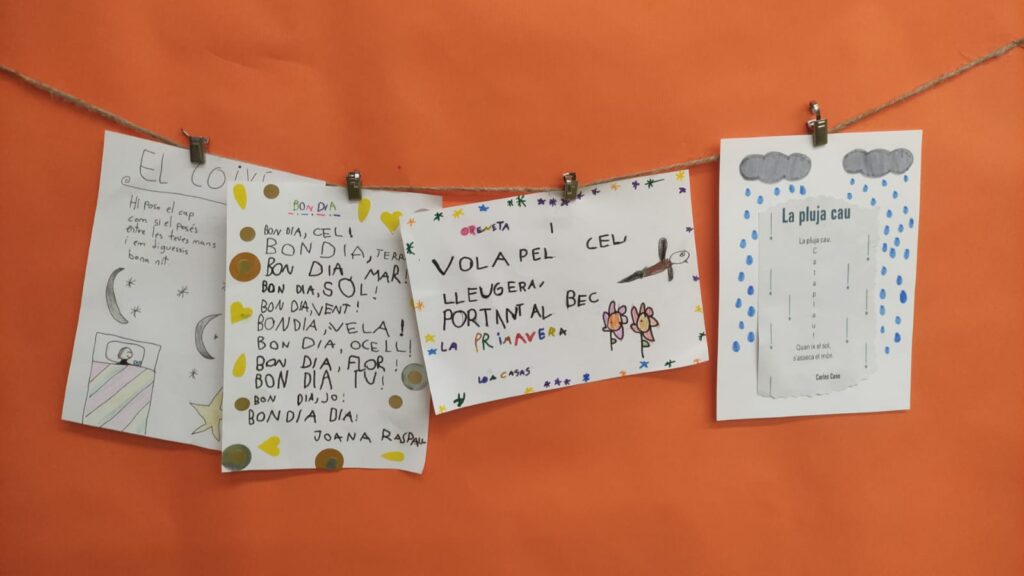 EL
Hi poso el cap
com si el posés
entre les teves mans
i em diguessis
bona nit.
BON DIA
BON DIA, CEL!
BON DIA, TERRA
BON DIA, MAR!
BON DIA, SOL!
BON DIA, VENT!
BON DIA, VELA!
BON DIA, OCELL!
BON DIA, FLOR!
BON DIA TU!
BON DIA, JO!
BON DIA DIA!
JOANA RASPALL
ORENETA
I
VOLA PEL CEL
LLEUGERA,
PORTANT AL BEC
LA PRIMAVERA
LOLA CASAS
La pluja cau
La pluja cau.
C
a
t
a
p
l
a
u
!
Quan ix el sol,
s'asseca el món.
Carles Cano